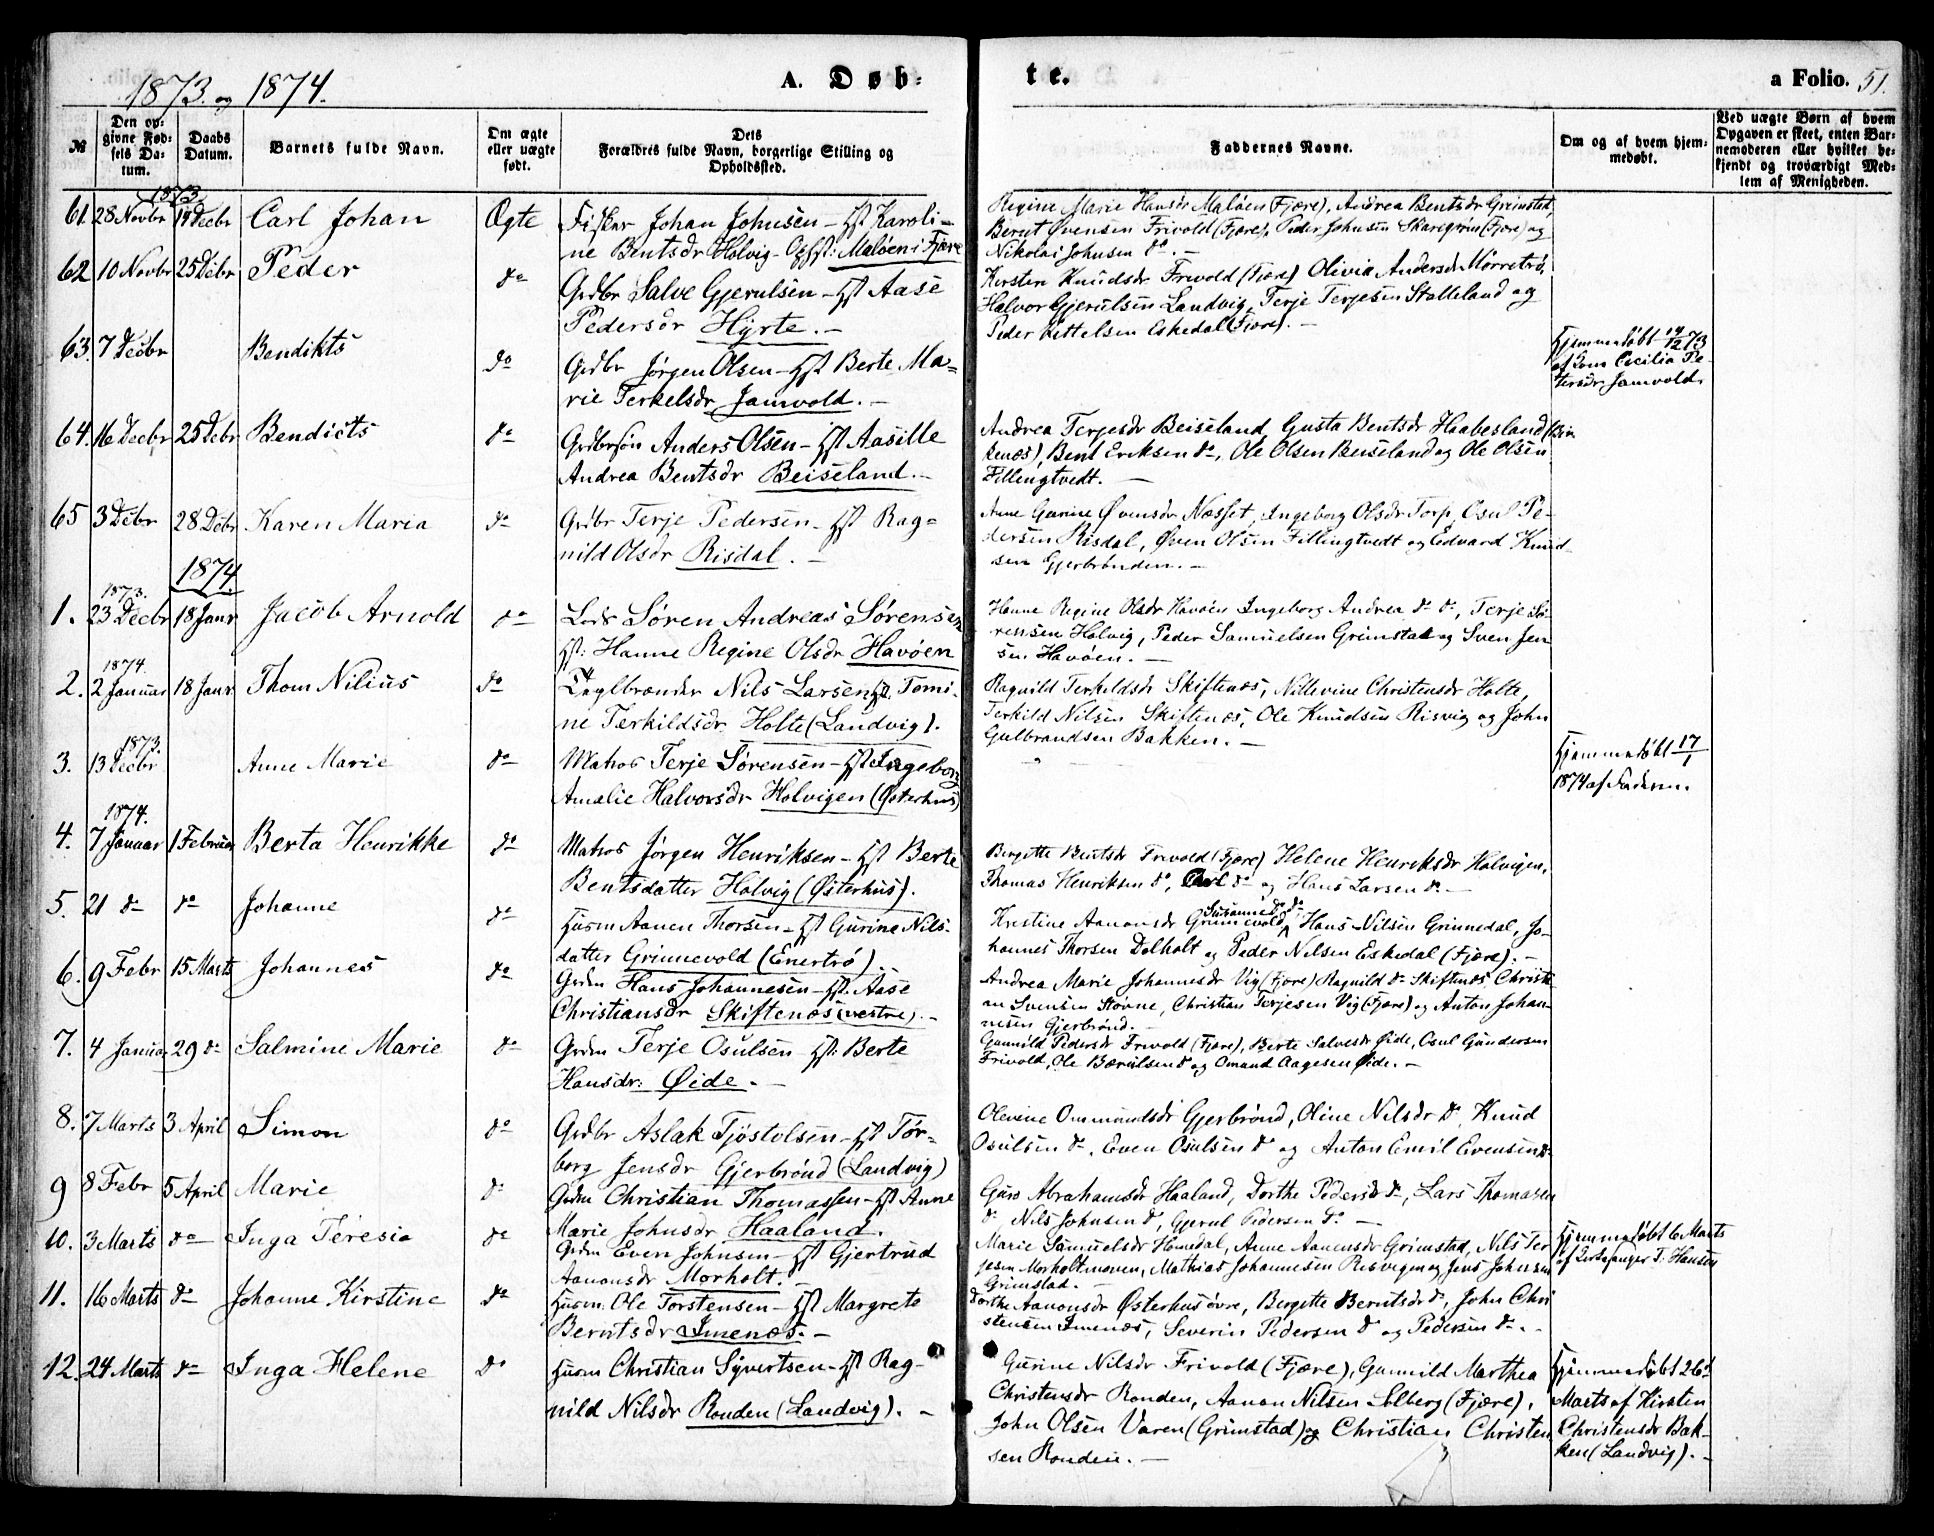 1873. og 1874.
A. Døb-
te.
a Folio. 51.
№
Den op-
givne Fød-
sels Da-
tum.
Daabs
Datum.
Barnets fulde Navn.
Om ægte
eller uægte
født.
Dets
Forældres fulde Navn, borgerlige Stilling og
Opholdssted.
Faddernes Navne.
Om og af hvem hjem-
medøbt.
Ved uægte Børn af hvem
Opgaven er skeet, enten Bar-
nemoderen eller hvilket be-
kjendt og troværdigt Med-
lem af Menigheden.
1873.
61. 28 Novbr Decbr Carl Johan Ægte Fisker Johan Johnsen – Hst Karoli-
ne Bentsdr Holvig – Ophst: Maløen i Fjære
Regine Marie Hansdr Maløen (Fjære), Andrea Bentsdr Grimstad,
Berut Øvensen Frivold (Fjære), Peder Johnsen (Fjære) og
Nikolai Johnsen do. –
62 10 Novbr 25 Debr Peder do Grdbr Salve Gjerulsen – Hst Aase
Pedersdr Hyrte. –
Kirsten Knudsdr Frivold (Fjære) Olivia Andersdr Mørretrø,
Halvor Gjerulsen Landvig, Terje Terjesen Stalleland og
Peder Kittelsen Eskedal (Fjære). –
63. 7 Decbr Bendikts do Grdbr Jørgen Olsen – Hst Berte Ma-
rie Terkelsdr Jamvold. –
Hjemmedøbt 14/12 73
af Cecilia Pe-
tersdr Jamvold.
64. 16 Decbr 25 Debr Bendicts do Grdbrsøn Anders Olsen – Hst Aasille
Andrea Bentsdr Beiseland. –
Andrea Terjesdr Beiseland, Gusta Bentsdr Haabesland (Bir
kenæs), Bent Eriksen do, Ole Olsen Beiseland og Ole Olsen
Fillingtvedt. –
65 3 Debr 28 Debr Karen Maria do Grdbr Terje Pedersen – Hst Rag-
nild Olsdr Risdal. –
Anne Gurine Øvensdr Næsset, Ingeborg Olsdr Torp, Osul Pe-
dersen Risdal, Øven Olsen Fillingtvedt og Edvard Knud-
sen Gjerbrønden. –
1874
1873.
1. 23 Decbr 18 Janr Jacob Arnold do Lods Søren Andreas Sørensen
Hst: Hanne Regine Olsdr Havøen
Hanne Regine Olsdr Havøen Ingeborg Andrea do do, Terje Sø-
rensen Holvig, Peder Samuelsen Grimstad og Sven Jen
sen Havøen. –
1874.
2. 2 Januar 18 Janr Thom Nilius do Teglbrænder Nils Larsen Hst Tomi-
ne Terkildsdr Holte (Landvig).
Ragnild Terkildsdr Skiftenæs, Nillevine Christensdr Holte,
Terkild Nilsen Skiftenæs, Ole Knudsen Risvig og John
Gulbrandsen Bakken. –
1873.
3. 13 Decbr Anne Marie do Matros Terje Sørensen – Hst Ingeborg
Amalie Halvorsdr Holvigen (Østerhus)
Hjemmedøbt 17/1
1874 af Faderen.
1874.
4. 7 Januar 1 Februar Berta Henrikke do Matros Jørgen Henriksen – Hst Berte
Bentsdatter Holvig (Østerhus).
Birgitte Bentsdr Frivold (Fjære) Helene Henriksdr Holvigen,
Thomas Henriksen do, do og Hans Larsen do –
5. 21 do do Johanne do Husm Aanen Thorsen – Hst Gurine Nils-
datter Grinnevold (Enertrø).
Kristine Aanonsdr Grinnevold, Susanne do do Hans Nilsen Grinnedal, Jo-
hannes Thorsen Dolholt og Peder Nilsen Eskedal (Fjære). –
6. 9 Febr 15 Marts Johannes do Grdm Hans Johannesen – Hst: Aase
Christiansdr Skiftenæs (vestre). –
Andrea Marie Johannesdr Vig (Fjære) Ragnild do Skiftenæs, Christi-
an Svensen Støvne, Christian Terjesen Vig (Fjære) og Anton Johan-
nesen Gjerbrønd. –
7. 4 Januar 29 do Salmine Marie do Grdm Terje Osulsen Hst: Berte
Hansdr: Øide. –
Gunnild Pedersdr Frivold (Fjære), Berte Salvesdr Øide, Osul Gundersen
Frivold, Ole Bærulsen do og Omund Aagesen Øide. –
8. 7 Marts 3 April Simon do Grdbr Aslak Tjøstolsen – Hst Tør-
borg Jensdr Gjerbrønd (Landvig)
Olevine Ommundsdr Gjerbrønd, Oline Nilsdr do, Knud
Osulsen do, Even Osulsen do og Anton Emil Evensen do
9 8 Febr 5 April Marie do Grdm Christian Thomassen – Hst Anne
Marie Johnsdr Haaland.
Guro Abrahamsdr Haaland, Dorthe Pedersdr do, Lars Thomasen
do Nils Johnsen do, Gjerul Pedersen do –
10. 3 Marts do Inga Teresia do Grdm Even Johnsen – Hst Gjertrud
Aanonsdr Morholt. –
Marie Samuelsdr Homedal, Anne Aanensdr Grimstad, Nils Ter
jesen Morholtmoven, Mathias Johannesen Risvigen og Jens Johnsen
Grimstad. –
Hjemmedøbt 6 Marts
af Kirkesanger T. Hansen
11. 16 Marts do Johanne Kirstine do Husm: Ole Torstensen – Hst Margrete
Berntsdr Imenæs. –
Dorthe Aanonsdr Østerhus øvre, Bergette Berntsdr do, John Chri
stensen Imenæs, Severin Pedersen do og Pedersen do –
12. 24 Marts do Inga Helene do Husm Christian Syvertsen – Hst Rag-
nild Nilsdr Ronden (Landvig). –
Gurine Nilsdr Frivold (Fjære), Gunnild Marthea
Christensdr Ronden, Aanon Nilsen Solberg (Fjære),
John Olsen Varen (Grimstad) og Christian Christen
sen Ronden. –
Hjemmedøbt 26d
Marts af Kirsten
Christensdr Bak-
ken (Landvig). –